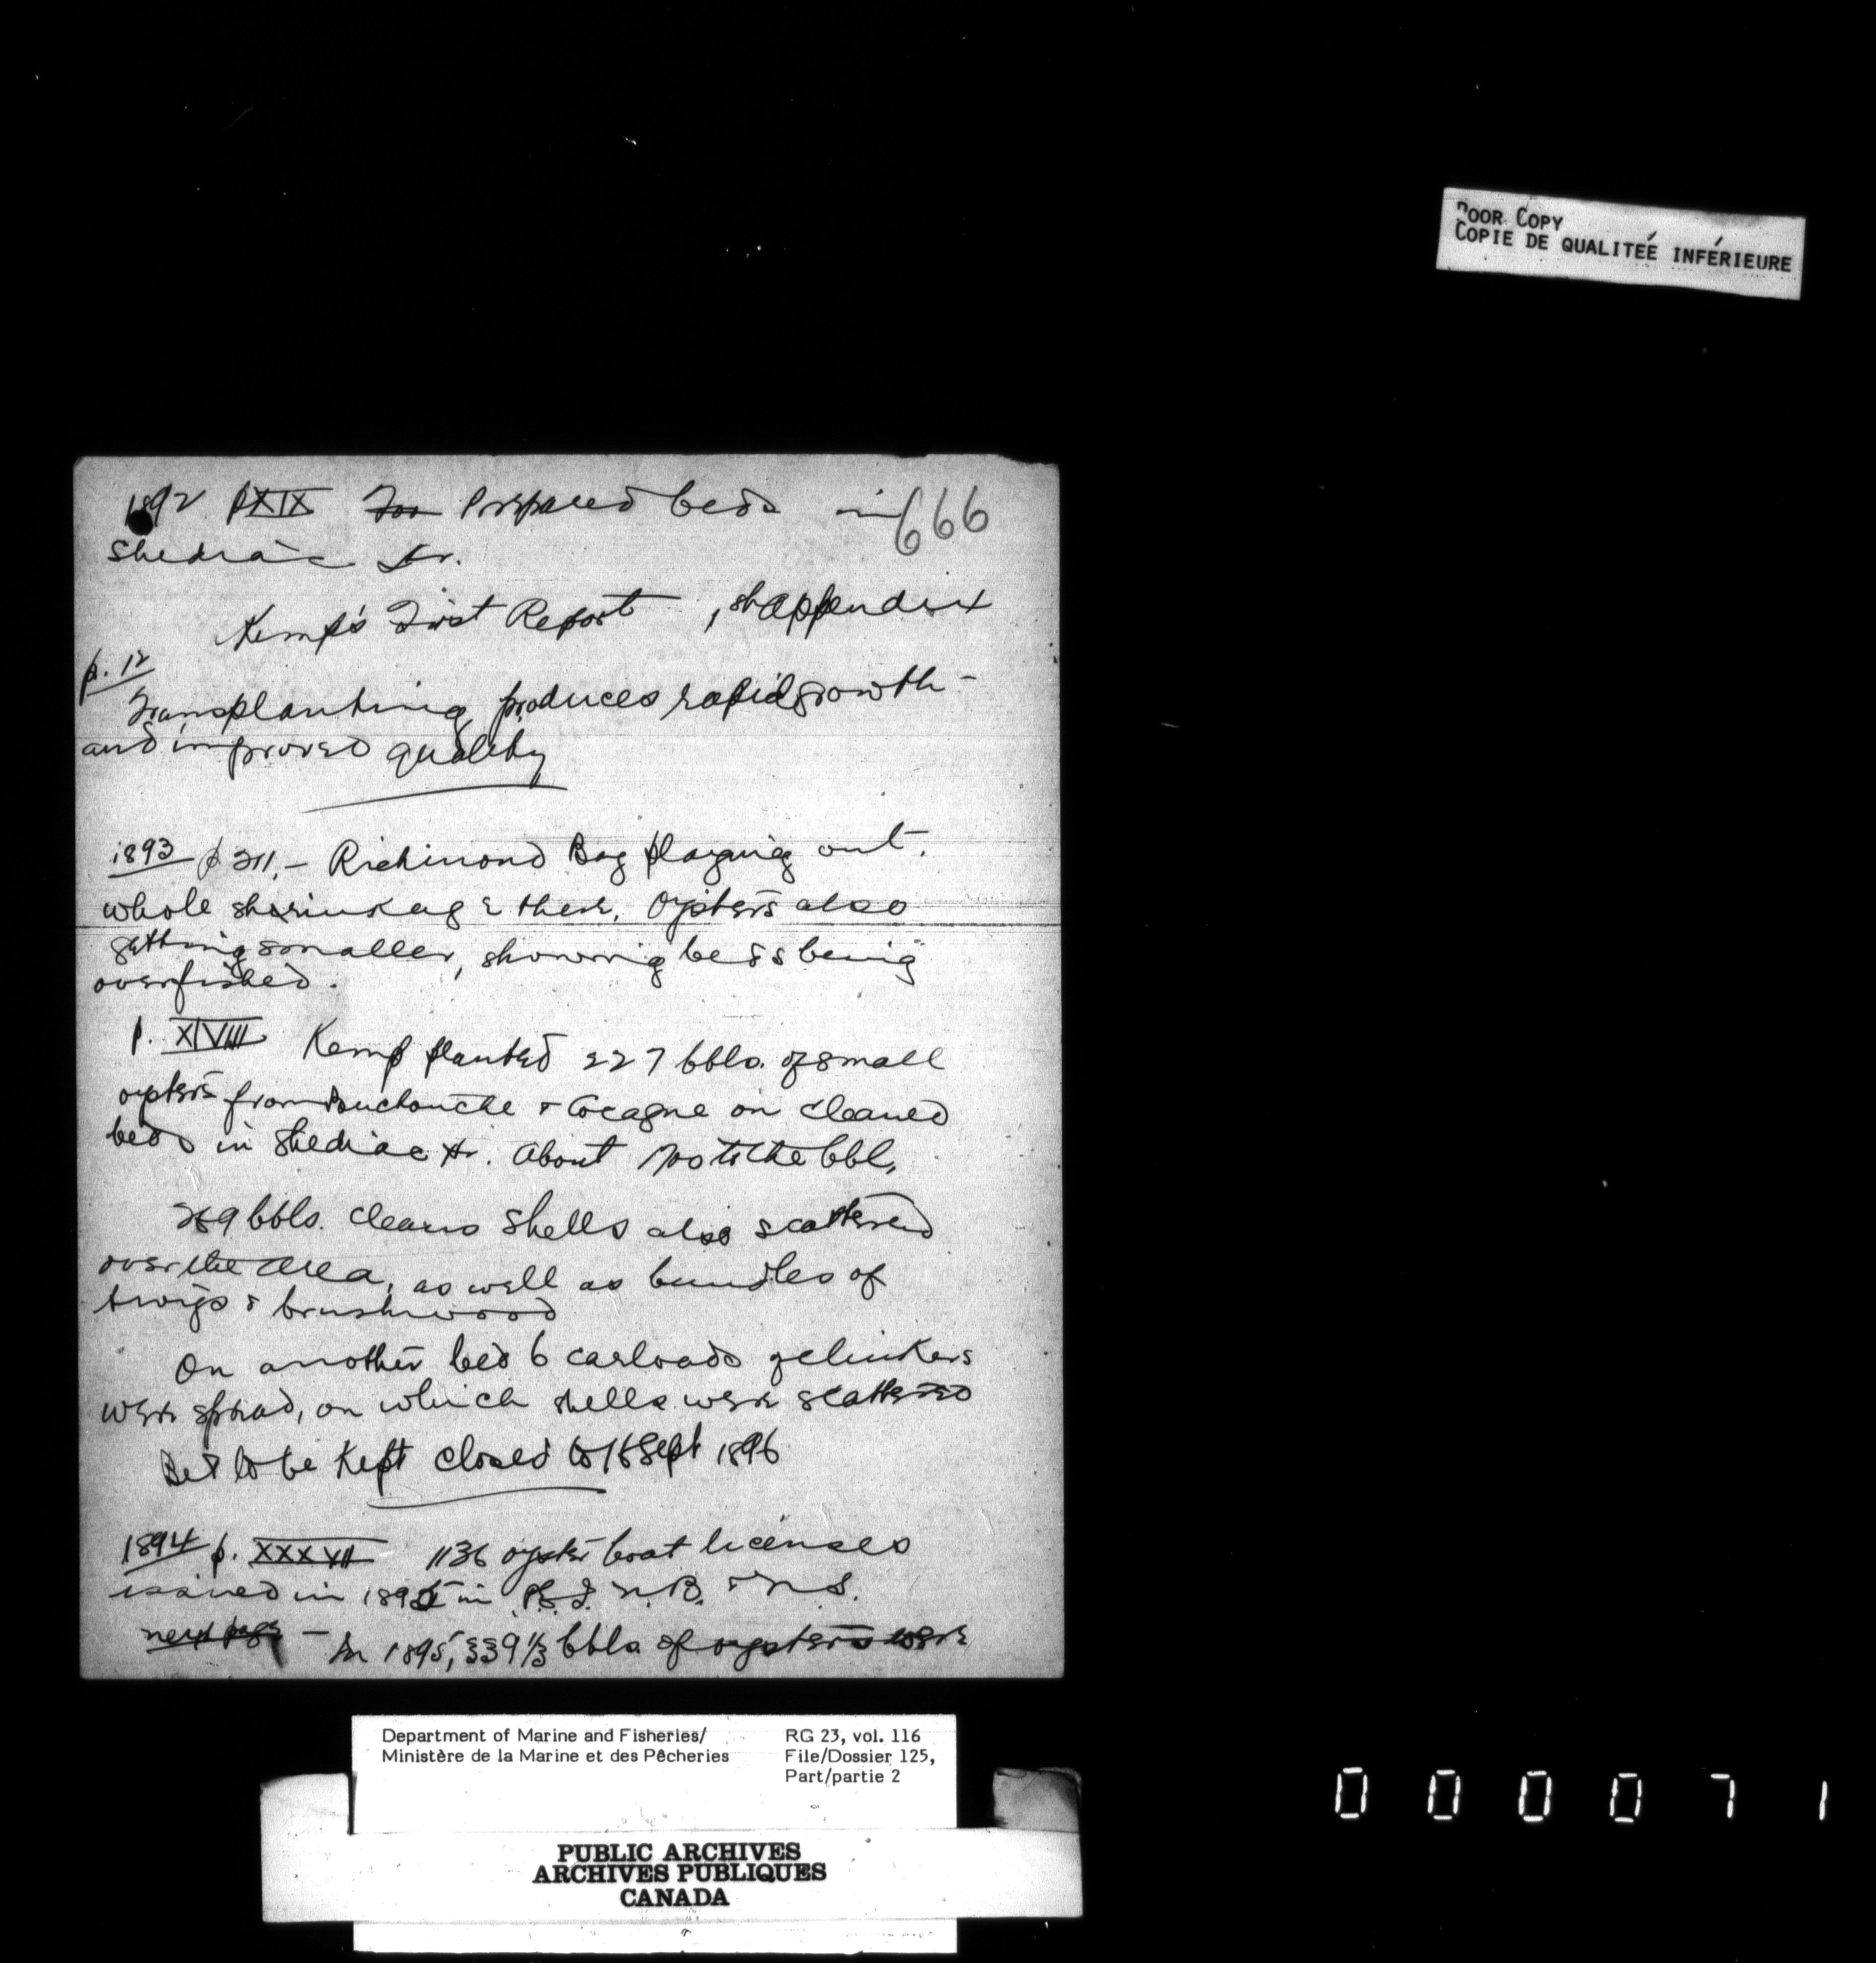 POOR COPY
COPIE DE QUALITEÉ INFÉRIEURE
1892 p XIX Prepared beds in 666
Shediac Hr.
Kemp's First Report, Appendix
p. 12
Transplanting produces rapid growth -
and improved quality
1893 p 211, - Richmond Bay playing out.
whole shrinkage there. Oysters also
getting smaller, showing beds being
overfished.
p. XLVIII Kemp planted 227 bbls. of small
oysters from Buctouche & Cocagne on cleaned
beds in Shediac Hr. About to the bbl.
bbls. clean shells also scattered
over the area, as well as bundles of
twigs & brushwood
On another bed 6 carloads of clinkers
were spread, on which shells were scattered
Bed to be kept closed to 16 Sept 1896
1894 p. XXXVII 1136 oyster boat licenses
issued in 1895 in P.E.I. N.B. & N.S.
next page - In 1895, 339 1/3 bbls of oysters were
Department of Marine and Fisheries/ RG 23, vol. 116
Ministère de la Marine et des Pêcheries File/Dossier 125,
Part/partie 2
PUBLIC ARCHIVES
ARCHIVES PUBLIQUES
CANADA
0 0 0 0 7 1